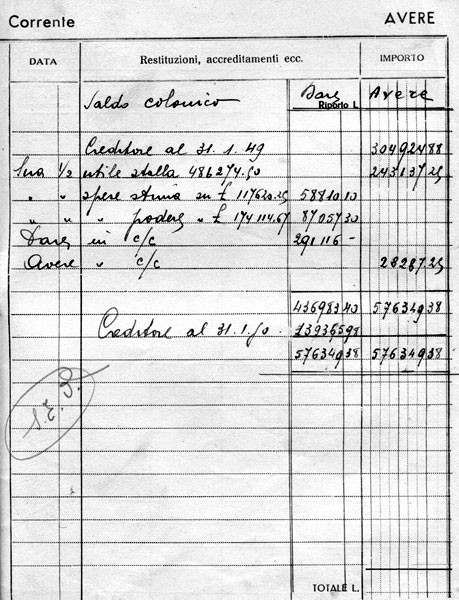 Corrente AVERE
DATA Restituzioni, accreditamenti ecc. IMPORTO
Saldo colonico Dare Avere
Riporto L.
Creditore al 31.1.49 30492488
Sua 1/2 utile stalla 486274.50 24313725
" " spese stima su £ 117620.25 5881010
" " " podere " £ 174114.67 8705730
Dare in c/c 291116 -
Avere " c/c 2828725
43698340 57634938
Creditore al 31.1.50. 13936598
57634938 57634938
TOTALE L.